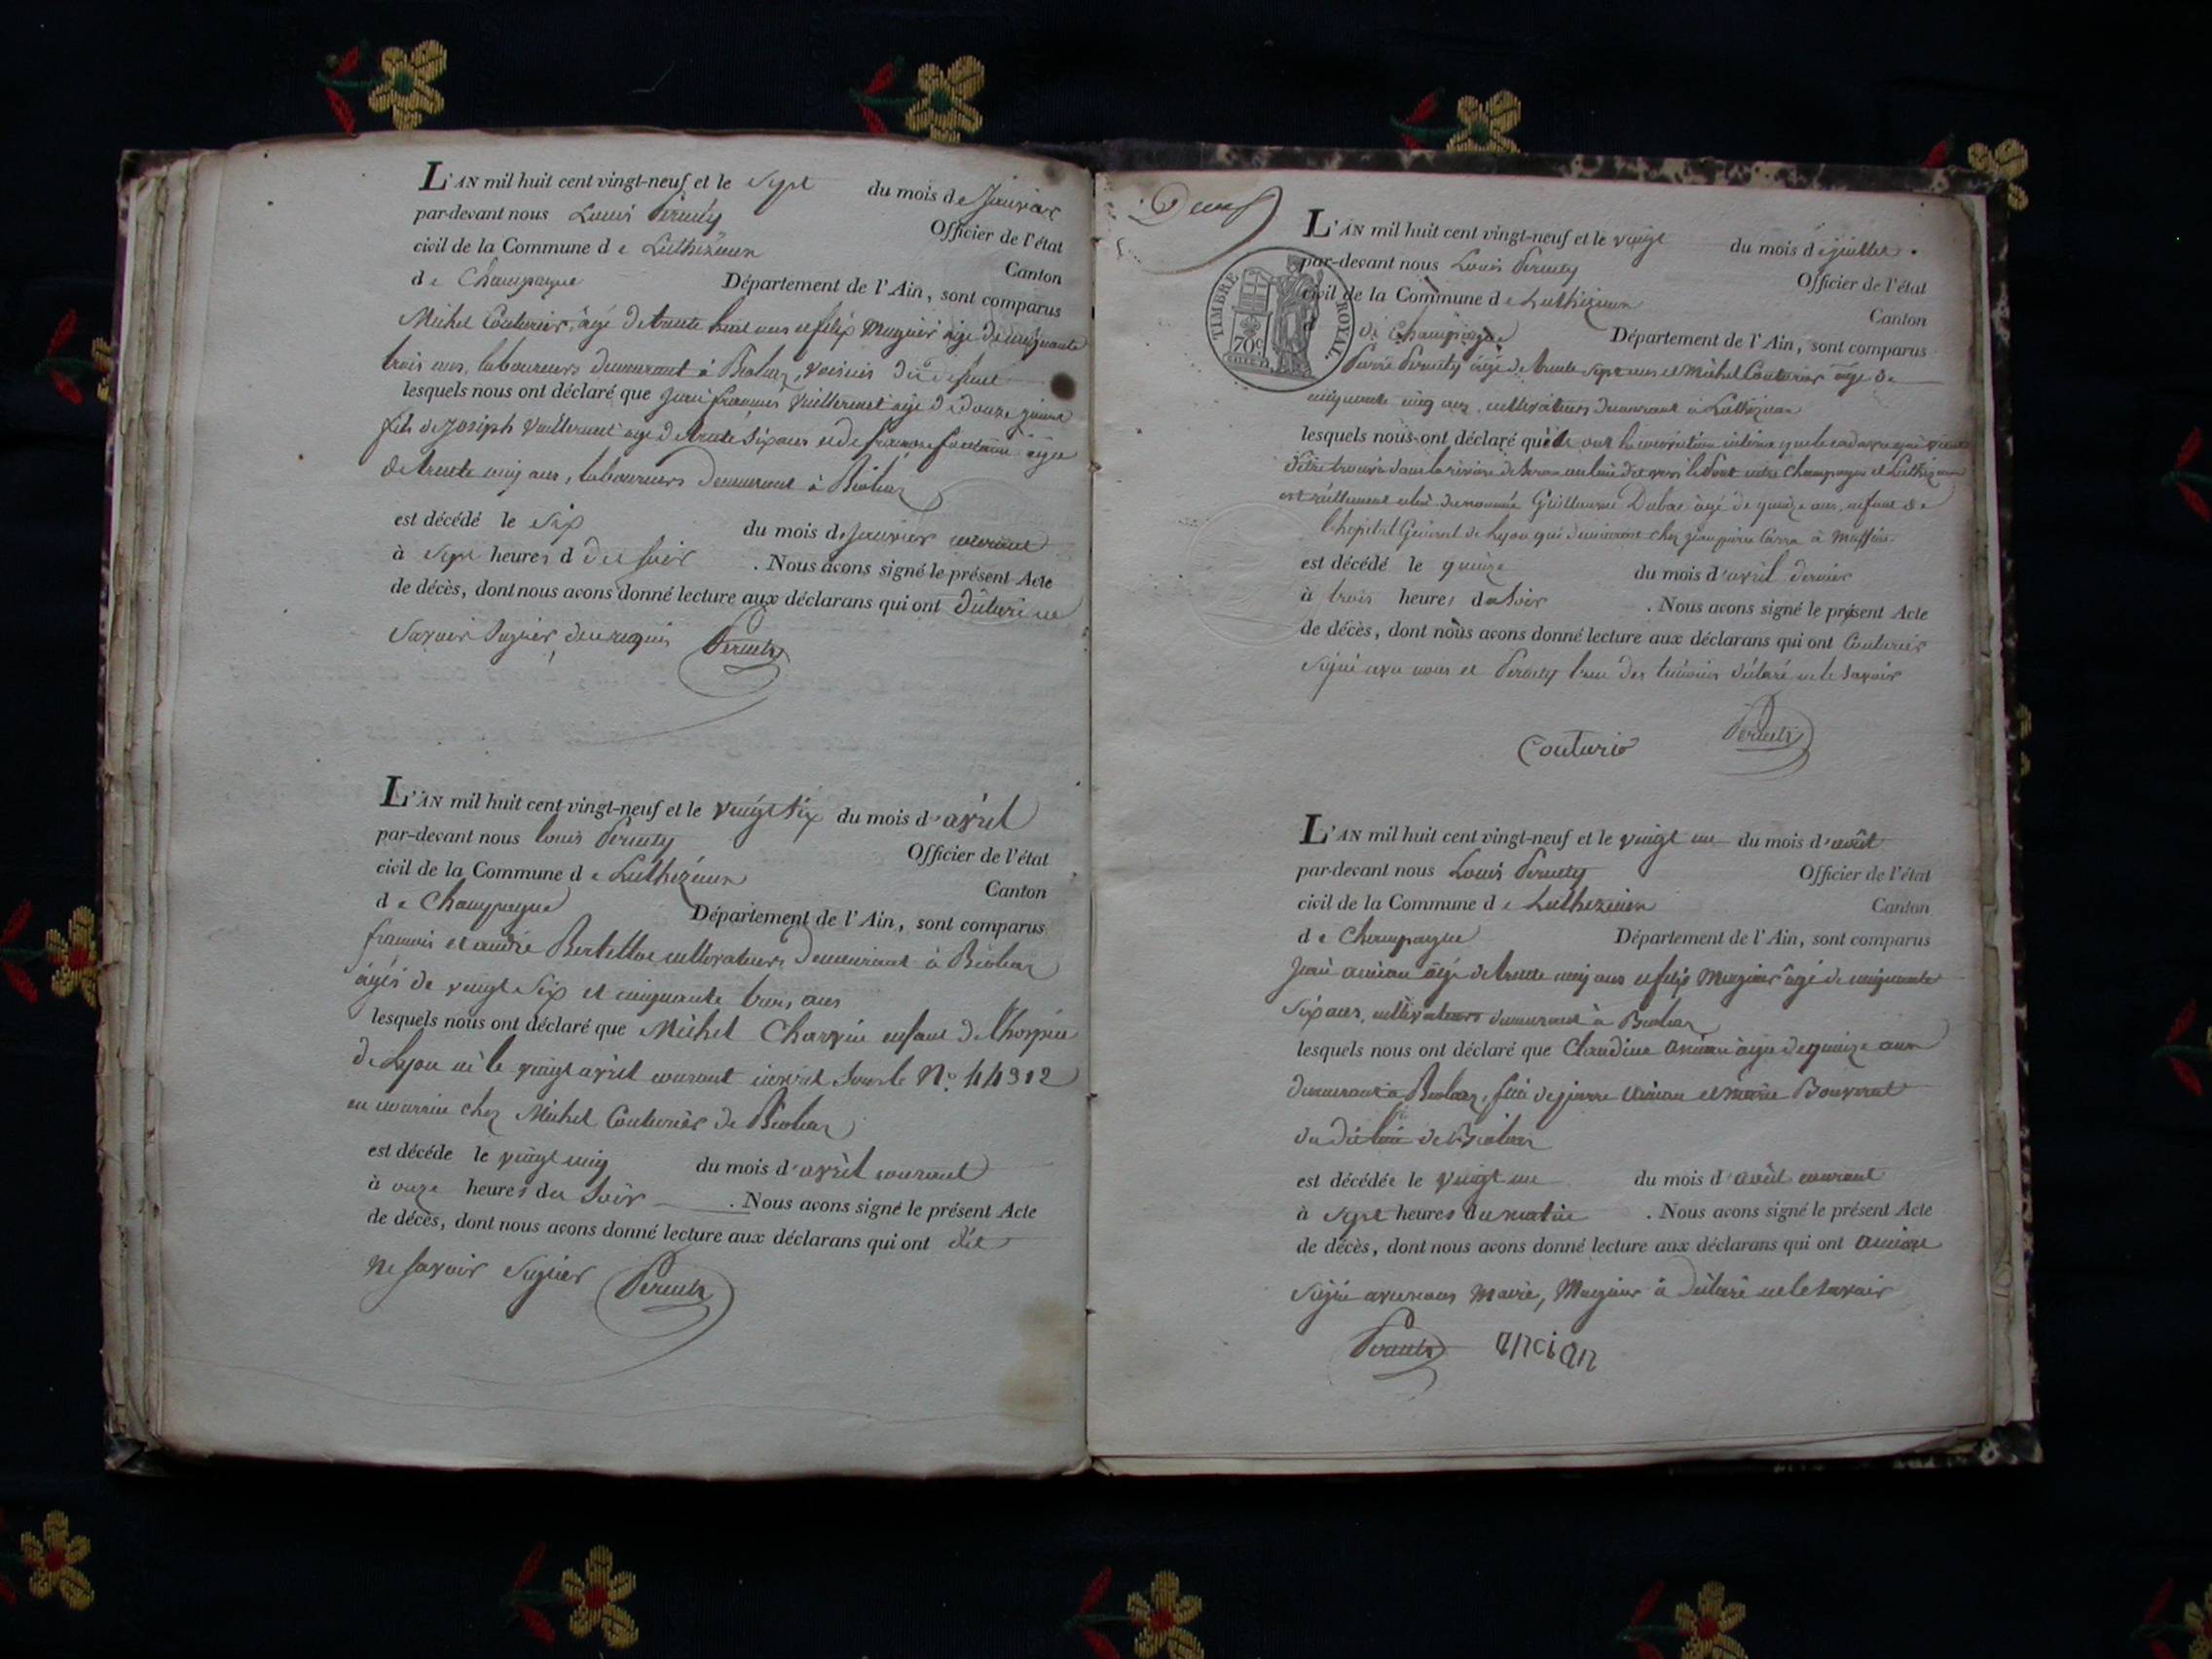 L'AN mil huit cent vingt-neuf et le Sept du mois de Janvier
par-devant nous Louis Peruety Officier de l'état
civil de la Commune de Luthézieu Canton
de Champagne Département de l'Ain, sont comparus
Michel Couturier, âgé de trente huit ans et felix Mugnier âgé de cinquante
trois ans, laboureurs demeurant à Béolaz, voisins du défunt
lesquels nous ont déclaré que Jean françois Vuillermet âgé de douze jours
fils de Joseph Vuillermet âgé de trente six ans et de françoise âgée
de trente cinq ans, laboureurs demeurant à Béolaz
est décédé le Six du mois de Janvier courant
à Sept heures d du soir . Nous avons signé le présent Acte
de décès, dont nous avons donné lecture aux déclarans qui ont déclaré ne
Savoir Signer, de ce requis Peruety
L'AN mil huit cent vingt-neuf et le vingt six du mois d'avril
par-devant nous louis Peruety Officier de l'état
civil de la Commune de Luthézieu Canton
de Champagne Département de l'Ain, sont comparus
francois et andré Berthellot cultivateurs demeurant à Béolaz
âgés de vingt Six et cinquante trois ans
lesquels nous ont déclaré que Michel Charvin enfant de l'hospice
de Lyon né le vingt avril courant inscrit Sous le N° 44312
en nourrice chez Michel Couturier de Béolaz
est décédé le vingt cinq du mois d'avril courant
à onze heures du Soir . Nous avons signé le présent Acte
de décès, dont nous avons donné lecture aux déclarans qui ont dit
ne savoir Signer Peruety
Deux
L'AN mil huit cent vingt-neuf et le vingt du mois de juillet
par-devant nous Louis Peruety Officier de l'état
civil de la Commune de Luthézieu Canton
de Champagne Département de l'Ain, sont comparus
TIMBRE ROYAL 70c
Pierre Peruety âgé de trente Sept ans et Michel Couturier âgé de
cinquante cinq ans, cultivateurs demeurant à Luthézieu
lesquels nous ont déclaré qu'ils ont la conviction intime que le cadavre qui vient
d'être trouvé dans la rivière de Seran au lieu dit vers le Pont entre Champagne et Luthézieu
est réellement celui du nommé Guillaume Dubac âgé de quinze ans, enfant de
l'hopital Général de Lyon qui demeurant chez jean pierre Carra à
est décédé le quinze du mois d'avril dernier
à trois heures du Soir . Nous avons signé le présent Acte
de décès, dont nous avons donné lecture aux déclarans qui ont Couturier
Signé avec nous et Peruety l'un des témoins déclaré ne le Savoir
Couturié Peruety
L'AN mil huit cent vingt-neuf et le vingt un du mois d'août
par-devant nous Louis Peruety Officier de l'état
civil de la Commune de Luthézieu Canton
de Champagne Département de l'Ain, sont comparus
Jean ancian âgé de trente cinq ans et felix Mugnier âgé de cinquante
Six ans, cultivateurs demeurant à Béolaz
lesquels nous ont déclaré que Claudine ancian âgée de quinze ans
demeurant à Béolaz, fille de pierre ancian et marie Bouverat
du dit lieu de Béolaz
est décédée le vingt un du mois d'août courant
à Sept heures du matin . Nous avons signé le présent Acte
de décès, dont nous avons donné lecture aux déclarans qui ont ancian
Signé avec nous Maire, Mugnier à déclaré ne le Savoir
Peruety ancian